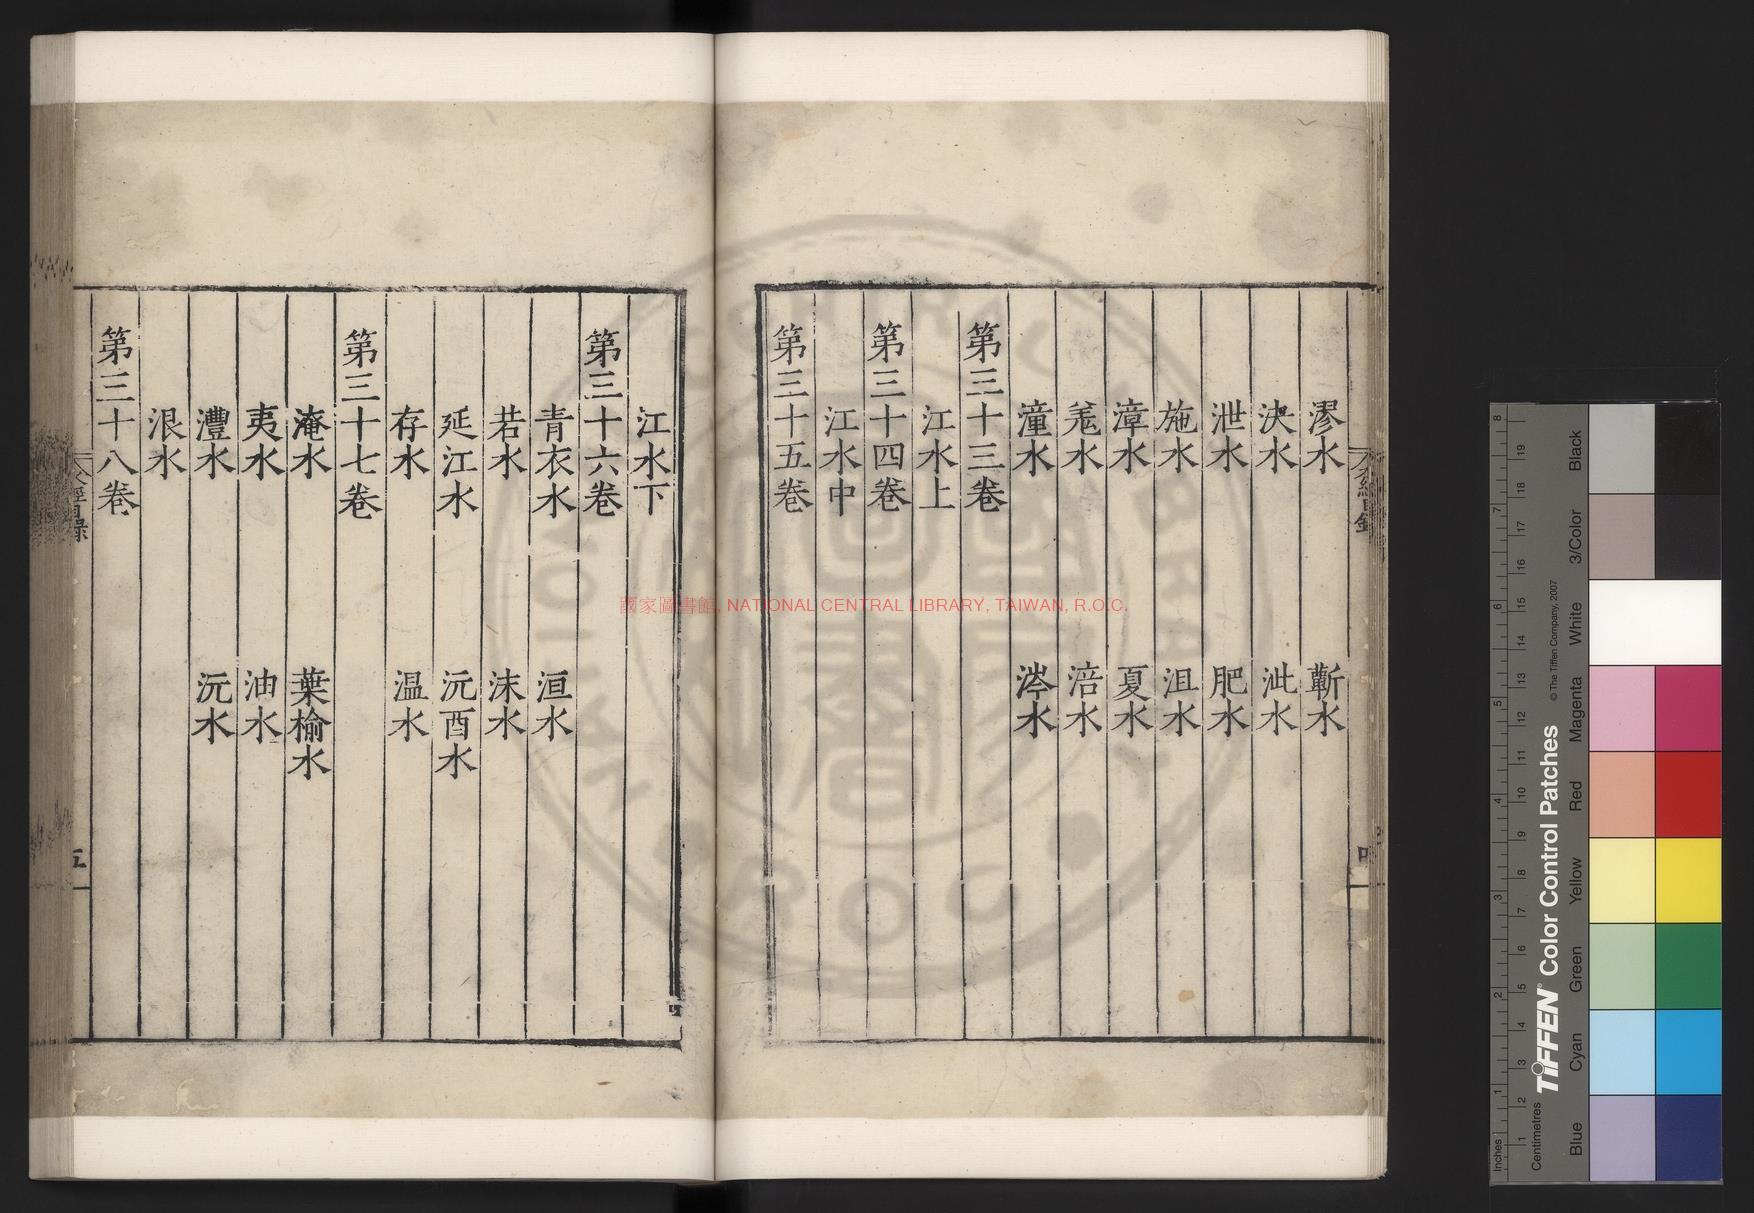 漻水　蘄水
決水　沘水
泄水　肥水
施水　沮水
漳水　夏水
羌水　涪水
潼水　涔水
第三十三卷
江水上
第三十四卷
江水中
第三十五卷
江水下
第三十六卷
青衣水　洹水
若水　沫水
延江水　沅酉水
存水　温水
第三十七卷
淹水　葉榆水
夷水　油水
灃水　沅水
泿水
第三十八卷
五
國家圖書館, NATIONAL CENTRAL LIBRARY, TAIWAN, R.O.C.
Inches
Centimetres
TIFFEN® Color Control Patches
© The Tiffen Company, 2007
Blue
Cyan
Green
Yellow
Red
Magenta
White
3/Color
Black